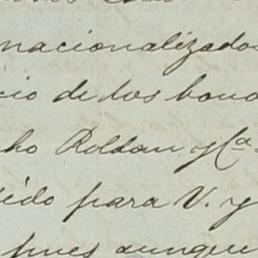 nacionalizado
cio de los bono
ho Roldan y Cª
dido para V. y
pues aunque